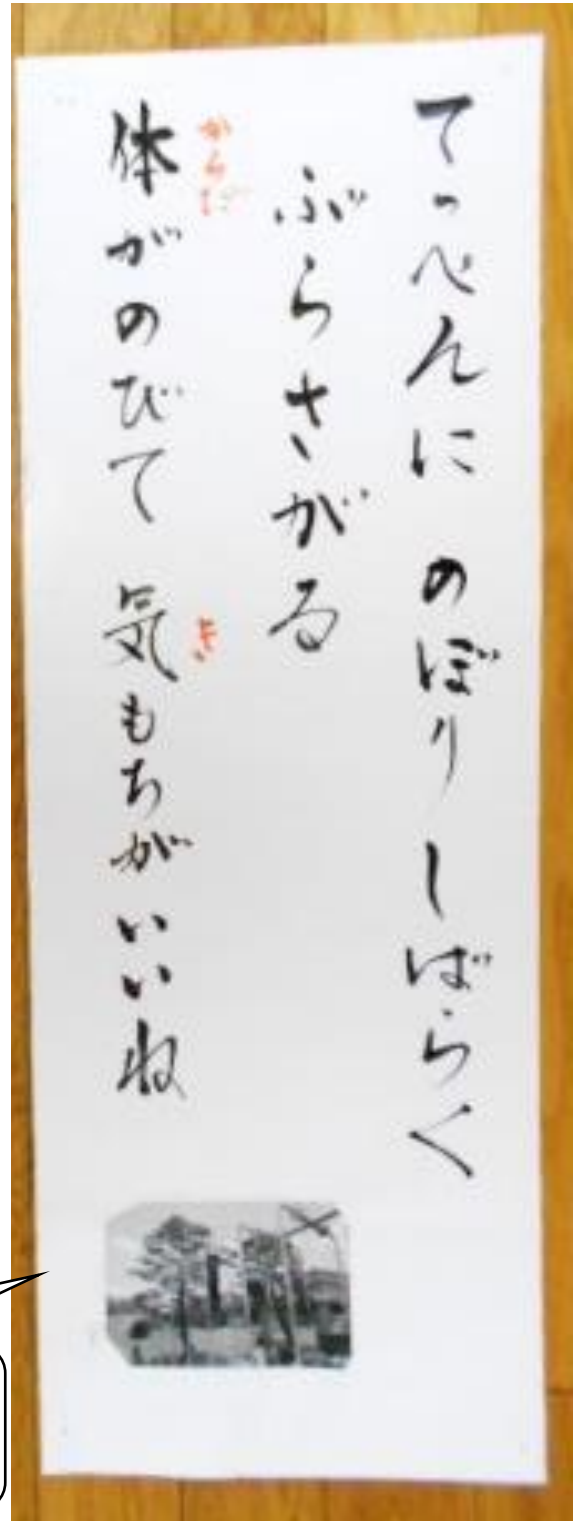 てっぺんに のぼり しばらく
ぶらさがる
からだ
体がのびて 気もちがいいね
き